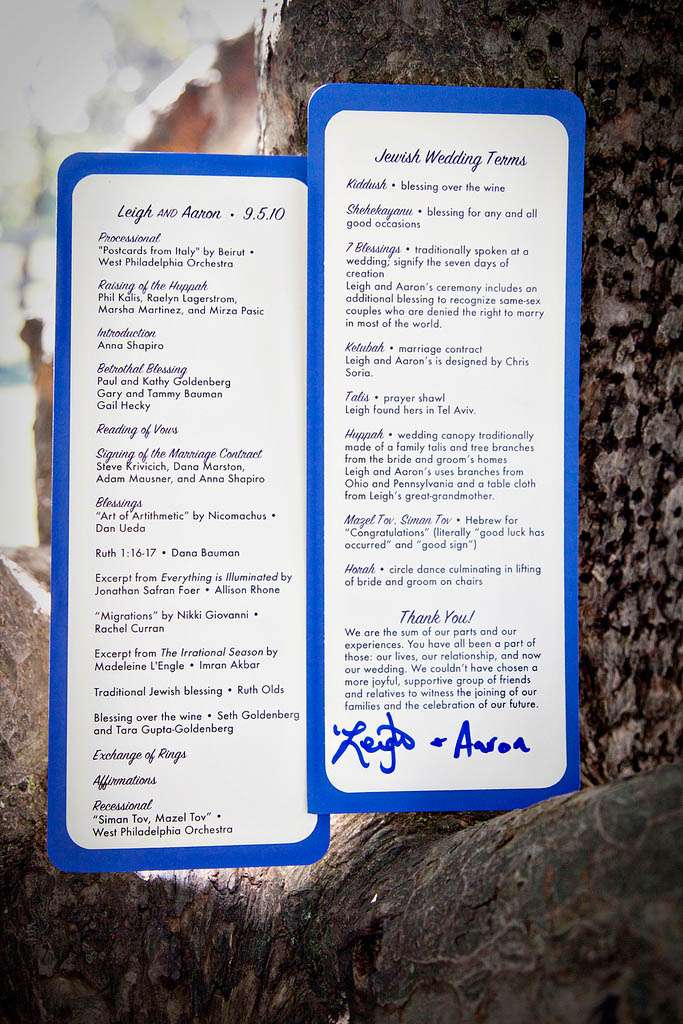 Leigh AND Aaron • 9.5.10
Processional
"Postcards from Italy" by Beirut •
West Philadelphia Orchestra
Raising of the Huppah
Phil Kalis, Raelyn Lagerstrom,
Marsha Martinez, and Mirza Pasic
Introduction
Anna Shapiro
Betrothal Blessing
Paul and Kathy Goldenberg
Gary and Tammy Bauman
Gail Hecky
Reading of Vows
Signing of the Marriage Contract
Steve Krivicich, Dana Marston,
Adam Mausner, and Anna Shapiro
Blessings
"Art of Artithmetic" by Nicomachus •
Dan Ueda
Ruth 1:16-17 • Dana Bauman
Excerpt from Everything is Illuminated by
Jonathan Safran Foer • Allison Rhone
"Migrations" by Nikki Giovanni •
Rachel Curran
Excerpt from The Irrational Season by
Madeleine L'Engle • Imran Akbar
Traditional Jewish blessing • Ruth Olds
Blessing over the wine • Seth Goldenberg
and Tara Gupta-Goldenberg
Exchange of Rings
Affirmations
Recessional
"Siman Tov, Mazel Tov" •
West Philadelphia Orchestra
Jewish Wedding Terms
Kiddush • blessing over the wine
Shehekayanu • blessing for any and all
good occasions
7 Blessings • traditionally spoken at a
wedding; signify the seven days of
creation
Leigh and Aaron's ceremony includes an
additional blessing to recognize same-sex
couples who are denied the right to marry
in most of the world.
Ketubah • marriage contract
Leigh and Aaron's is designed by Chris
Soria.
Talis • prayer shawl
Leigh found hers in Tel Aviv.
Huppah • wedding canopy traditionally
made of a family talis and tree branches
from the bride and groom's homes
Leigh and Aaron's uses branches from
Ohio and Pennsylvania and a table cloth
from Leigh's great-grandmother.
Mazel Tov, Siman Tov • Hebrew for
"Congratulations" (literally "good luck has
occurred" and "good sign")
Horah • circle dance culminating in lifting
of bride and groom on chairs
Thank You!
We are the sum of our parts and our
experiences. You have all been a part of
those: our lives, our relationship, and now
our wedding. We couldn't have chosen a
more joyful, supportive group of friends
and relatives to witness the joining of our
families and the celebration of our future.
Leigh + Aaron